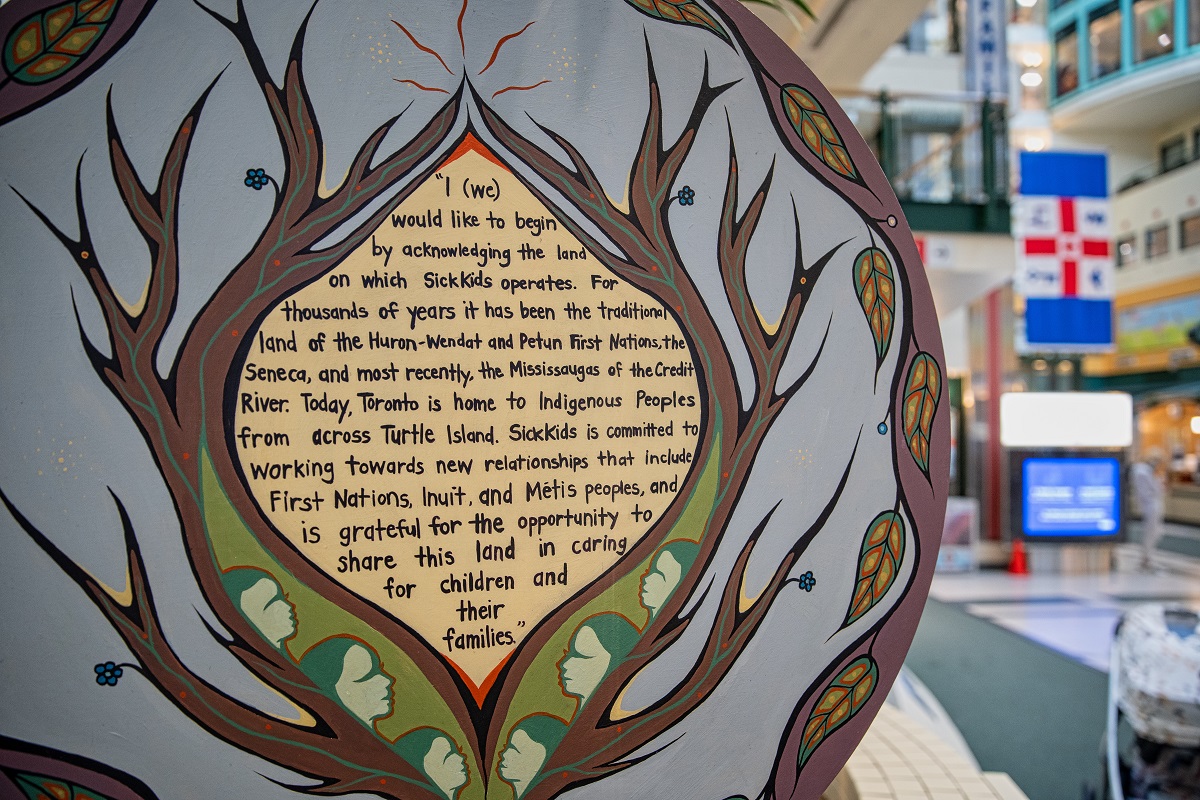 "I (we)
would like to begin
by acknowledging the land
on which SickKids operates. For
thousands of years it has been the traditional
land of the Huron-Wendat and Petun First Nations, the
Seneca, and most recently, the Mississaugas of the Credit
River. Today, Toronto is home to Indigenous Peoples
from across Turtle Island. SickKids is committed to
working towards new relationships that include
First Nations, Inuit, and Métis peoples, and
is grateful for the opportunity to
share this land in caring
for children and
their
families."